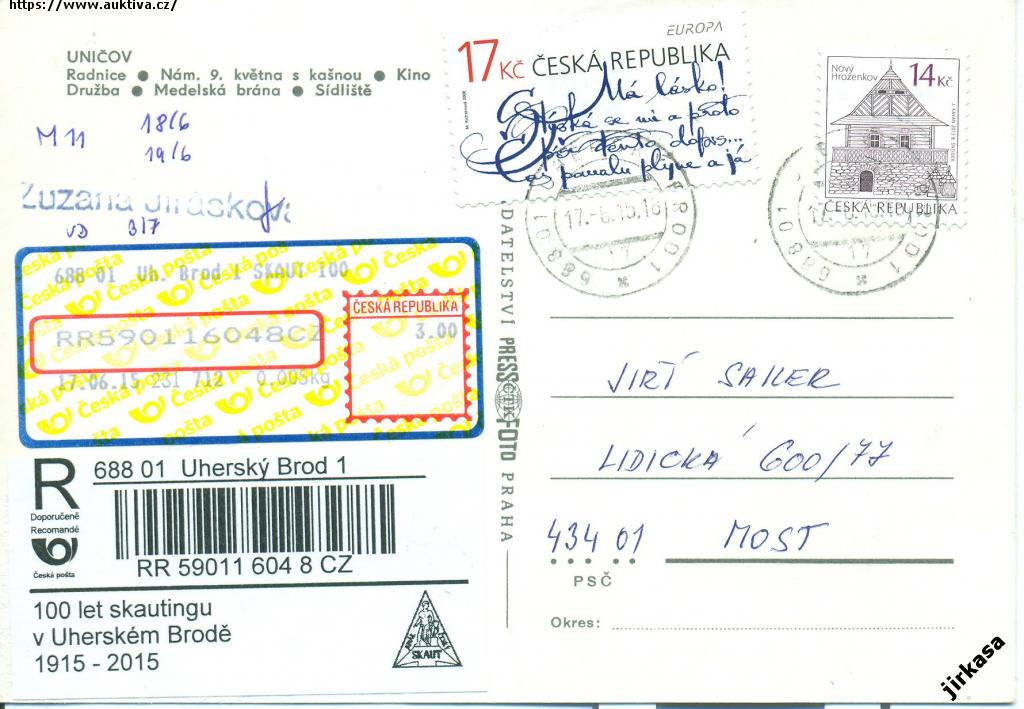 https://www.auktiva.cz/
UNIČOV
Radnice ● Nám. 9. května s kašnou ● Kino
Družba ● Medelská brána ● Sídliště
M 11
18/6
19/6
Zuzana Jirásková
3/7
EUROPA
17 Kč ČESKÁ REPUBLIKA
Má lásko!
Stýská se mi a proto
píši tento dopis...
čas pomalu plyne a já
Nový
Hrozenkov
14 Kč
ČESKÁ REPUBLIKA
688 01
17.-6.15.18
17
688 01
17
688 01 Uh. Brod 1 SKAUT 100
Česká pošta
ČESKÁ REPUBLIKA
3.00
RR590116048CZ
17.06.15 231 712 0.005kg
R
Doporučeně
Recomandé
Česká pošta
688 01 Uherský Brod 1
RR 59011 604 8 CZ
100 let skautingu
v Uherském Brodě
1915 - 2015
SKAUT
DATELSTVÍ PRESSFOTO PRAHA
ČTK
JIŘÍ SAILER
LIDICKÁ 600/77
434 01 MOST
PSČ
Okres:
jirkasa